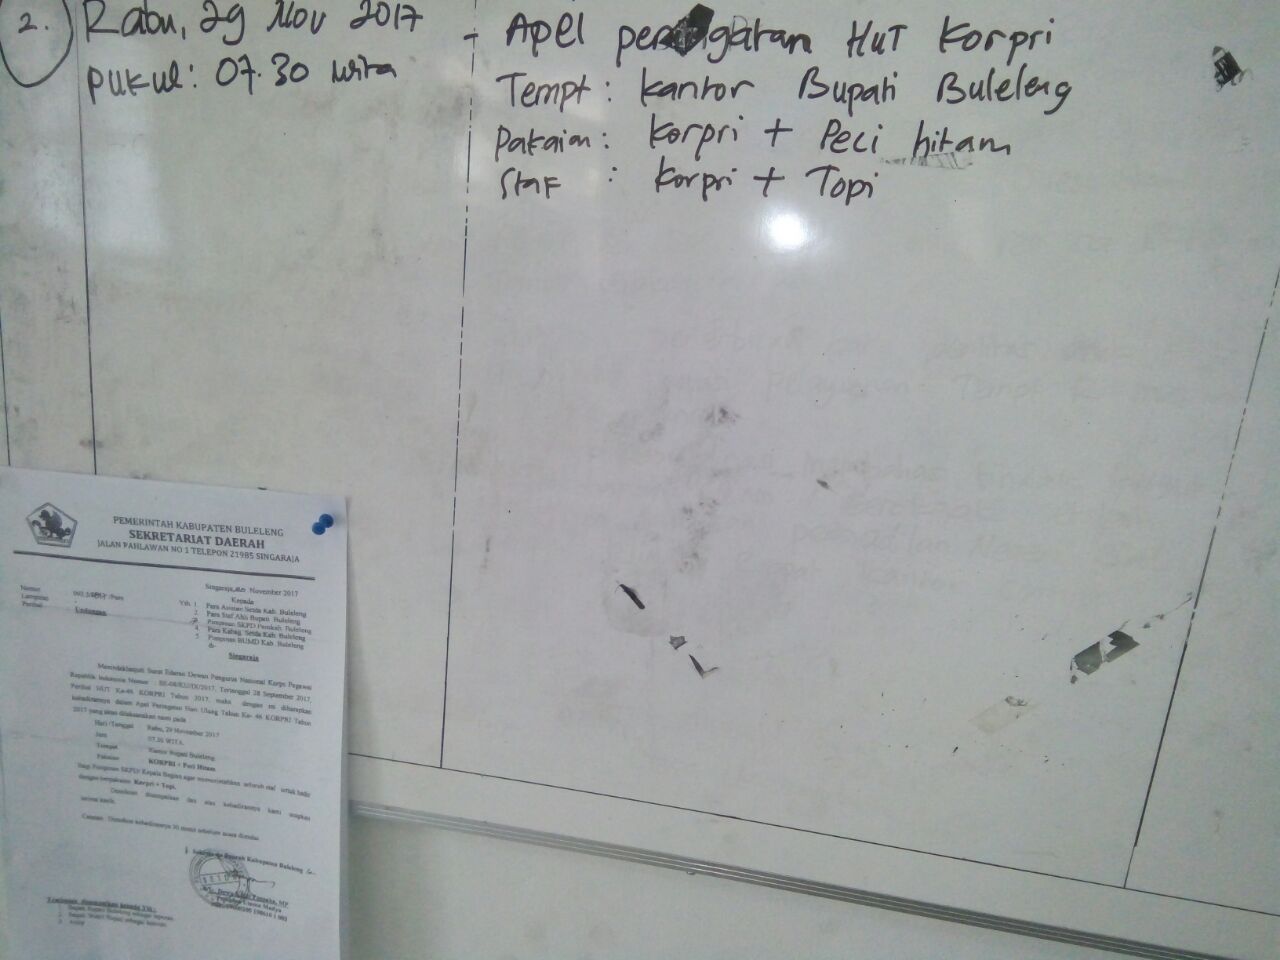 2.
Rabu, 29 Nov 2017
pukul: 07.30 wita
- Apel peringatan HUT Korpri
Tempt : kantor Bupati Buleleng
Pakaian : korpri + Peci hitam
Staf : korpri + Topi
PEMERINTAH KABUPATEN BULELENG
SEKRETARIAT DAERAH
JALAN PAHLAWAN NO 1 TELEPON 21985 SINGARAJA
Singaraja, November 2017
Nomor
Kepada
Lampiran
Yth. 1. Para Asisten Setda Kab. Buleleng
Perihal Undangan
2. Para Staf Ahli Bupati Buleleng
3. Pimpinan SKPD Pemkab. Buleleng
4. Para Kabag. Setda Kab. Buleleng
5. Pimpinan BUMD Kab. Buleleng
di-
Singaraja
Menindaklanjuti Surat Edaran Dewan Pengurus Nasional Korps Pegawai
Republik Indonesia Nomor : Tertanggal 28 September 2017,
Perihal HUT Ke-46 KORPRI Tahun 2017, maka dengan ini diharapkan
kehadirannya dalam Apel Peringatan Hari Ulang Tahun Ke- 46 KORPRI Tahun
2017 yang akan dilaksanakan nanti pada
Hari /Tanggal Rabu, 29 November 2017
Jam 07.30 WITA
Tempat Kantor Bupati Buleleng
Pakaian KORPRI + Peci Hitam
Bagi Pimpinan SKPD/ Kepala Bagian agar memerintahkan seluruh staf untuk hadir
dengan berpakaian Korpri + Topi.
Demikian disampaikan dan atas kehadirannya kami ucapkan
terima kasih.
Catatan : Dimohon kehadirannya 30 menit sebelum acara dimulai
Sekretaris Daerah Kabupaten Buleleng
Tembusan disampaikan kepada Yth :
1. Bapak Bupati Buleleng sebagai laporan
2. Bapak Wakil Bupati sebagai laporan
3. Arsip